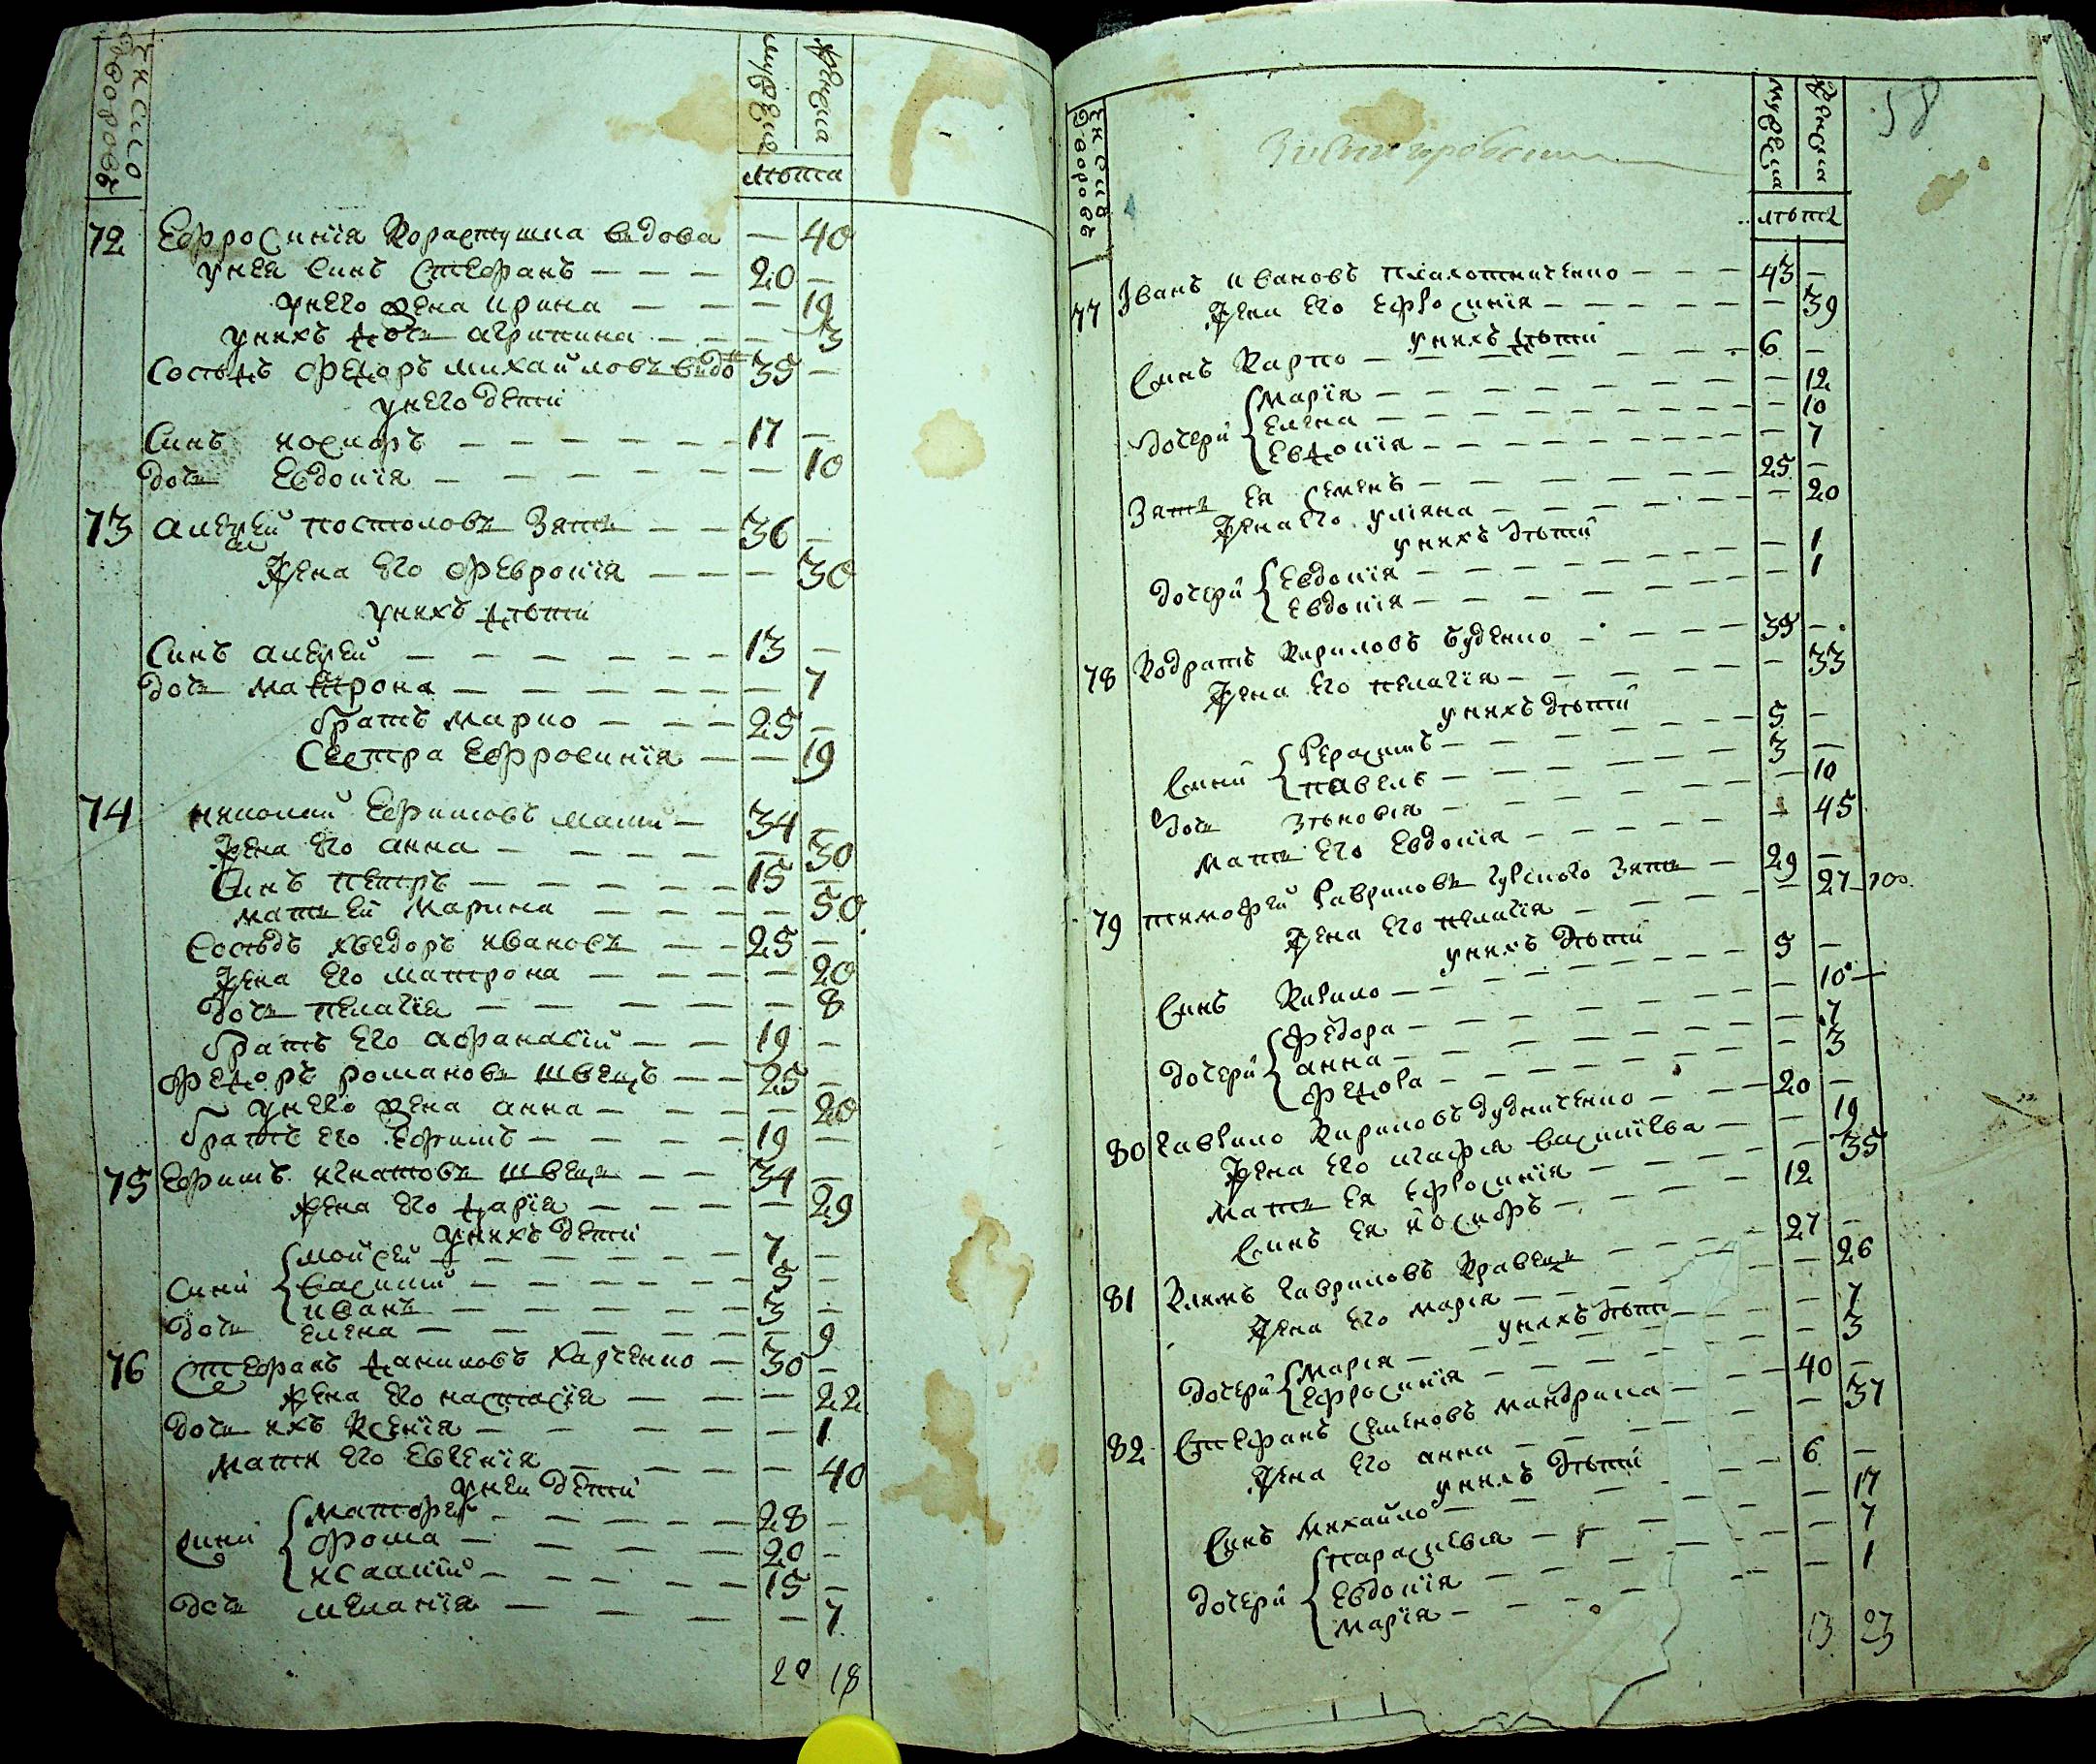 число дворовъ
мужеска
женска
лѣта
72 Ефросинїя Корастушна вдова — 40
у нея синъ Стефанъ — — — 20 —
у него жена ирина — — — 19
у нихъ дочь агрипина — — — 3
Сосѣдъ Федоръ михайловъ вдо 35 —
у него дети
Синъ никифоръ — — — 17 —
дочь Евдокїя — — — — 10
73 алеѯей постоловъ Зять — — 36 —
Жена Его февронїя — — — 30
у нихъ дѣти
Синъ алеѯей — — — — — 13 —
дочь матрона — — — — — 7
братъ марко — — — 25 —
Сестра Ефросинїя — — 19
74 николай Ефимовъ — 34 —
Жена Его анна — — — — 30
Синъ петръ — — — — 15 —
мать Ей марина — — — — 50
Сосѣдъ хведоръ ивановъ — — 25 —
Жена Его матрона — — — — 20
дочь пелагїя — — — — — 8
братъ Его афанасїй — — 19 —
федоръ романовъ швецъ — — 25 —
у него жена анна — — — — 20
братъ Его Ефимъ — — — 19 —
75 Ефимъ игнатовъ швецъ — — 34 —
жена Его дарїя — — — — 29
у нихъ дети
мойсей — — — — — 7 —
Сини василий — — — — — 5 —
иванъ — — — — — 3 —
дочь Елена — — — — — — 9
76 Стефанъ даниловъ Харченко — 30 —
жена Его настасїя — — — 22
дочь ихъ Ксенїя — — — — — 1
мати Его Евгенїя — — — — 40
у неи дети
матфей — — — — — 28 —
Сини фома — — — — — 20 —
исаакїй — — — — — 15 —
дочь меланїя — — — — — 7
20 18
число дворовъ
мужеска
женска
58
лѣта
77 Іванъ ивановъ плахотниченко — — — 43 —
Жена Его Ефросинїя — — — — — 39
у нихъ дѣти
Синъ Карпо — — — — — — 6 —
Марїя — — — — — — 12
дочери Елена — — — — — — 10
Евдокїя — — — — — — 7
Зять Ея Семенъ — — — — — 25 —
Жена Его улїяна — — — — — 20
у нихъ дѣти
дочери Евдокїя — — — — — 1
Евдокїя — — — — — 1
78 Кодратъ Кириловъ Буденко — — — 35 —
Жена Его пелагїя — — — — — 33
у нихъ дѣти
Сини Герасимъ — — — — — 5 —
павелъ — — — — — 3 —
дочь Зѣновїя — — — — — 10
мать Его Евдокїя — — — — 45
79 тимофей Гавриловъ Зять — 29 —
Жена Его пелагїя — — — — 27
у нихъ дѣти
Синъ Кирило — — — — — 5 —
феѣдора — — — — — 10
дочери анна — — — — — 7
федора — — — — — 3
80 Гаврило Кириловъ дудниченко — — 20 —
Жена Его агафїя василїева — — 19
мать Ея Ефросинїя — — — — 35
Синъ Ея никифоръ — — — — 12
81 Климъ Гавриловъ Кравецъ — — — 27 —
Жена Его марїя — — — — 26
у нихъ дѣти
дочери марїя — — — — — 7
Ефросинїя — — — — — 3
82 Стефанъ Семеновъ мандрика — — 40 —
Жена Его анна — — — — 37
у нихъ дѣти
Синъ Михайло — — — — — 6 —
параскевїя — — — — 17
дочери Евдокїя — — — — — 7
Марїя — — — — — 1
13 23